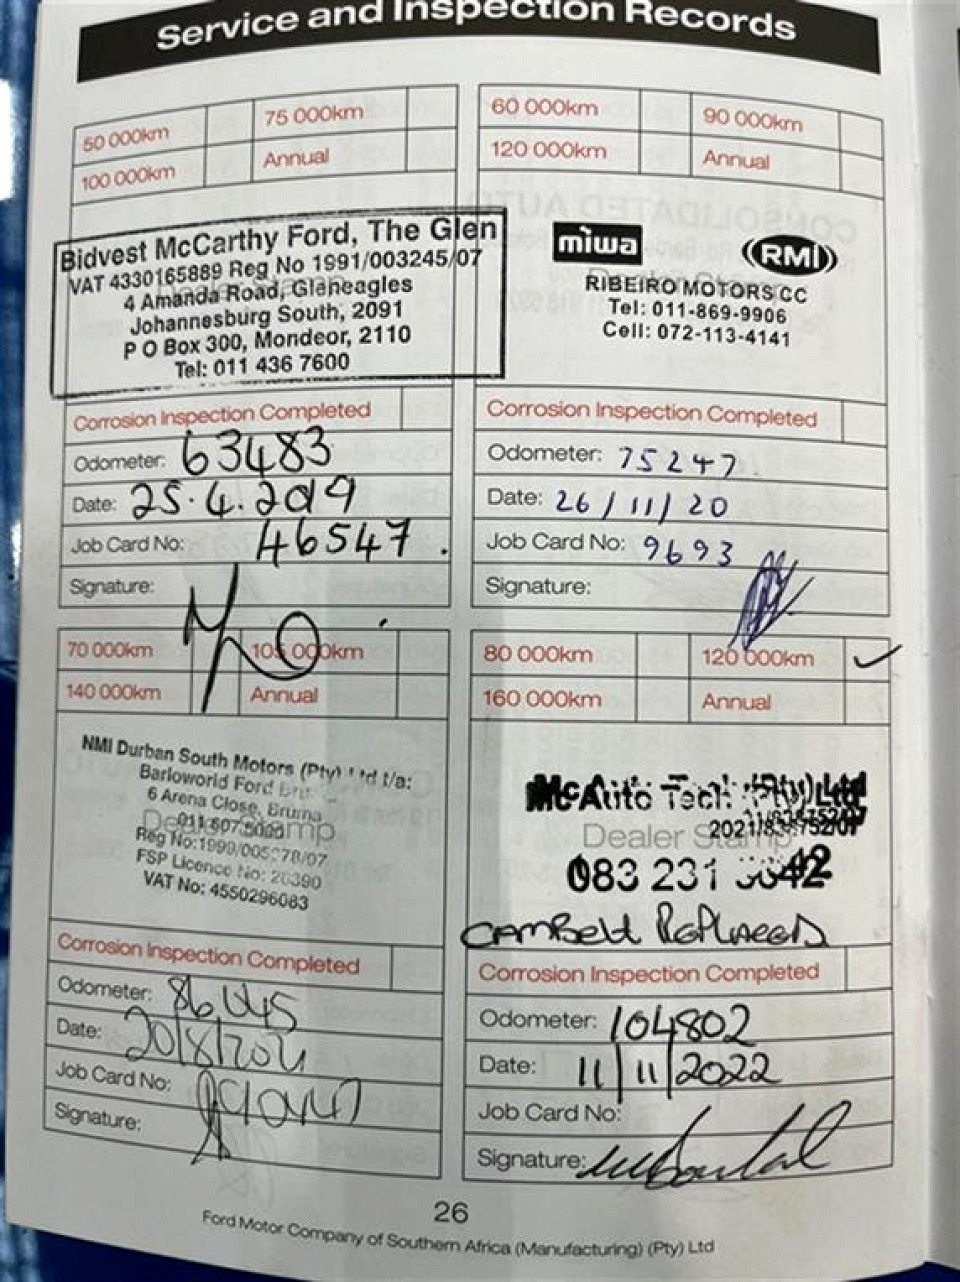 Service and Inspection Records
50 000km
75 000km
100 000km
Annual
Bidvest McCarthy Ford, The Glen
VAT 4330165889 Reg No 1991/003245/07
4 Amanda Road, Gleneagles
Johannesburg South, 2091
P O Box 300, Mondeor, 2110
Tel: 011 436 7600
Corrosion Inspection Completed
Odometer: 63483
Date: 25.4.2019
Job Card No: 46547.
Signature:
60 000km
90 000km
120 000km
Annual
miwa
RMI
Dealer Stamp
RIBEIRO MOTORS CC
Tel: 011-869-9906
Cell: 072-113-4141
Corrosion Inspection Completed
Odometer: 75247
Date: 26/11/20
Job Card No: 9693
Signature:
70 000km
105 000km
140 000km
Annual
NMI Durban South Motors (Pty) Ltd t/a:
Barloworld Ford
6 Arena Close, Bruma
Dealer Stamp
Reg No:1999/005 78/07
FSP Licence No:
VAT No: 4550296083
Corrosion Inspection Completed
Odometer:
Date: 20/8/2021
Job Card No:
Signature:
80 000km
120 000km ✓
160 000km
Annual
McAuto Tech (Pty) Ltd
Dealer Stamp
083 231
CAMBELT REPLACED
Corrosion Inspection Completed
Odometer: 104802
Date: 11/11/2022
Job Card No:
Signature:
26
Ford Motor Company of Southern Africa (Manufacturing) (Pty) Ltd